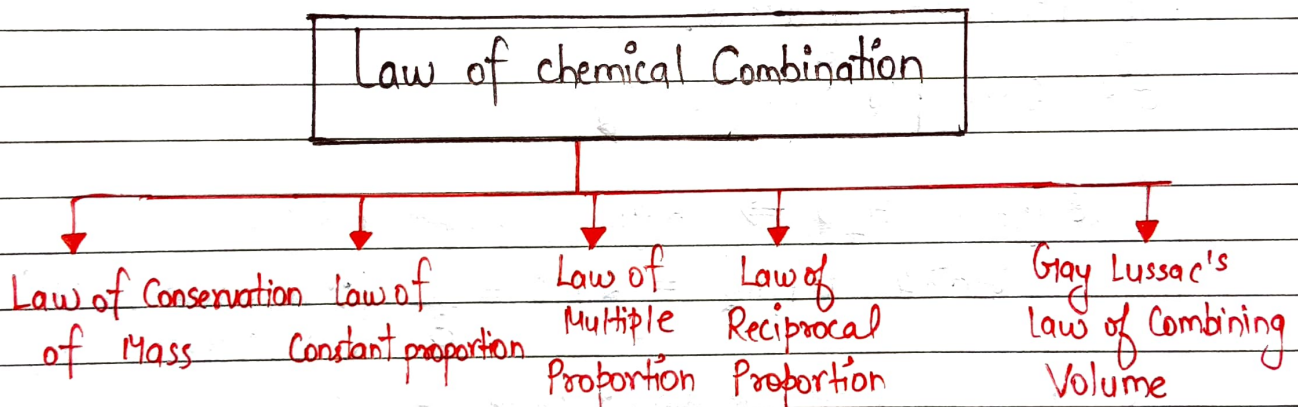 Law of chemical Combination
Law of Conservation
of Mass
law of
Constant proportion
Law of
Multiple
Proportion
Law of
Reciprocal
Proportion
Gay Lussac's
Law of Combining
Volume